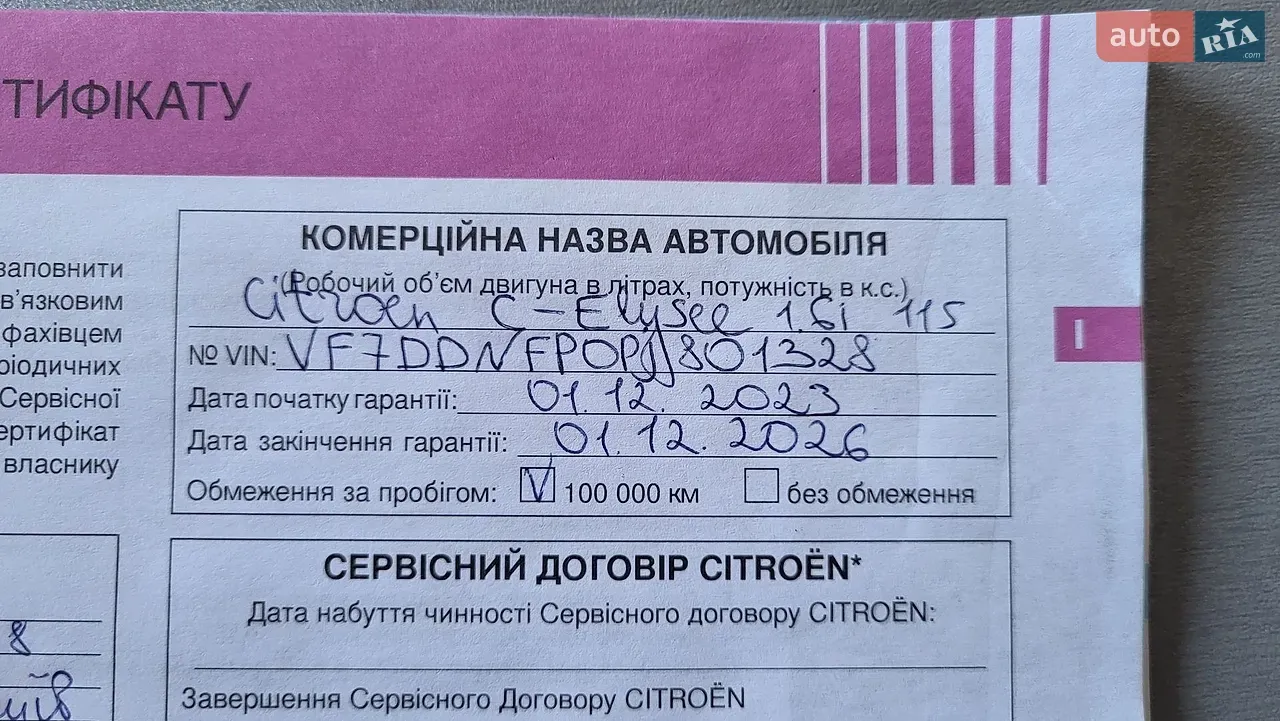 auto RIA .com
ТИФІКАТУ
заповнити
в'язковим
фахівцем
ріодичних
Сервісної
ертифікат
власнику
КОМЕРЦІЙНА НАЗВА АВТОМОБІЛЯ
(Робочий об'єм двигуна в літрах, потужність в к.с.)
Citroen C-Elysee 1.6i 115
№ VIN: VF7DDNFP0PJ801328
Дата початку гарантії: 01.12.2023
Дата закінчення гарантії: 01.12.2026
Обмеження за пробігом: V 100 000 км без обмеження
I
СЕРВІСНИЙ ДОГОВІР CITROËN*
Дата набуття чинності Сервісного договору CITROËN:
Завершення Сервісного Договору CITROËN
8